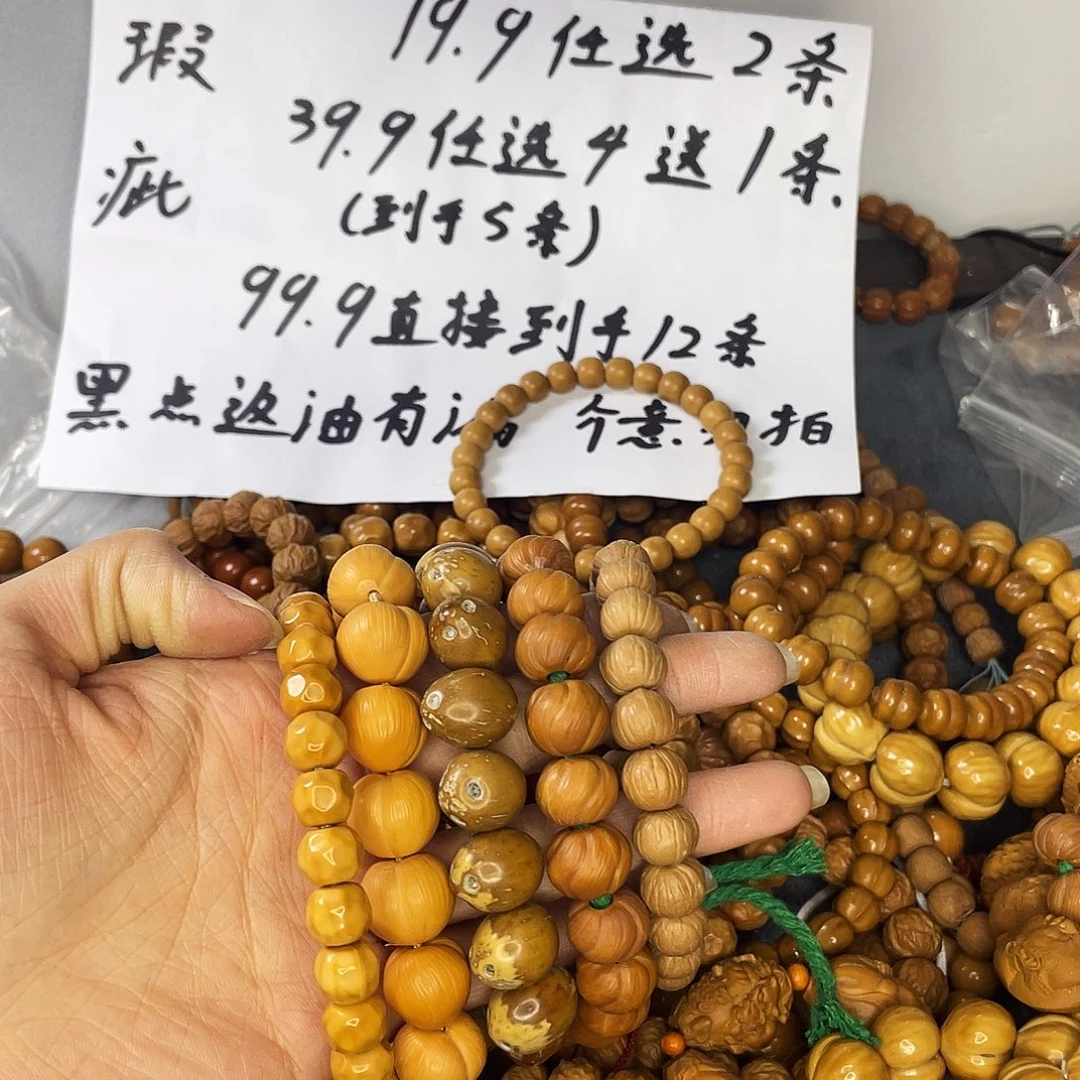 瑕疵
19.9任选2条
39.9任选4送1条.
(到手5条)
99.9直接到手12条
黑点返油有 介意 拍